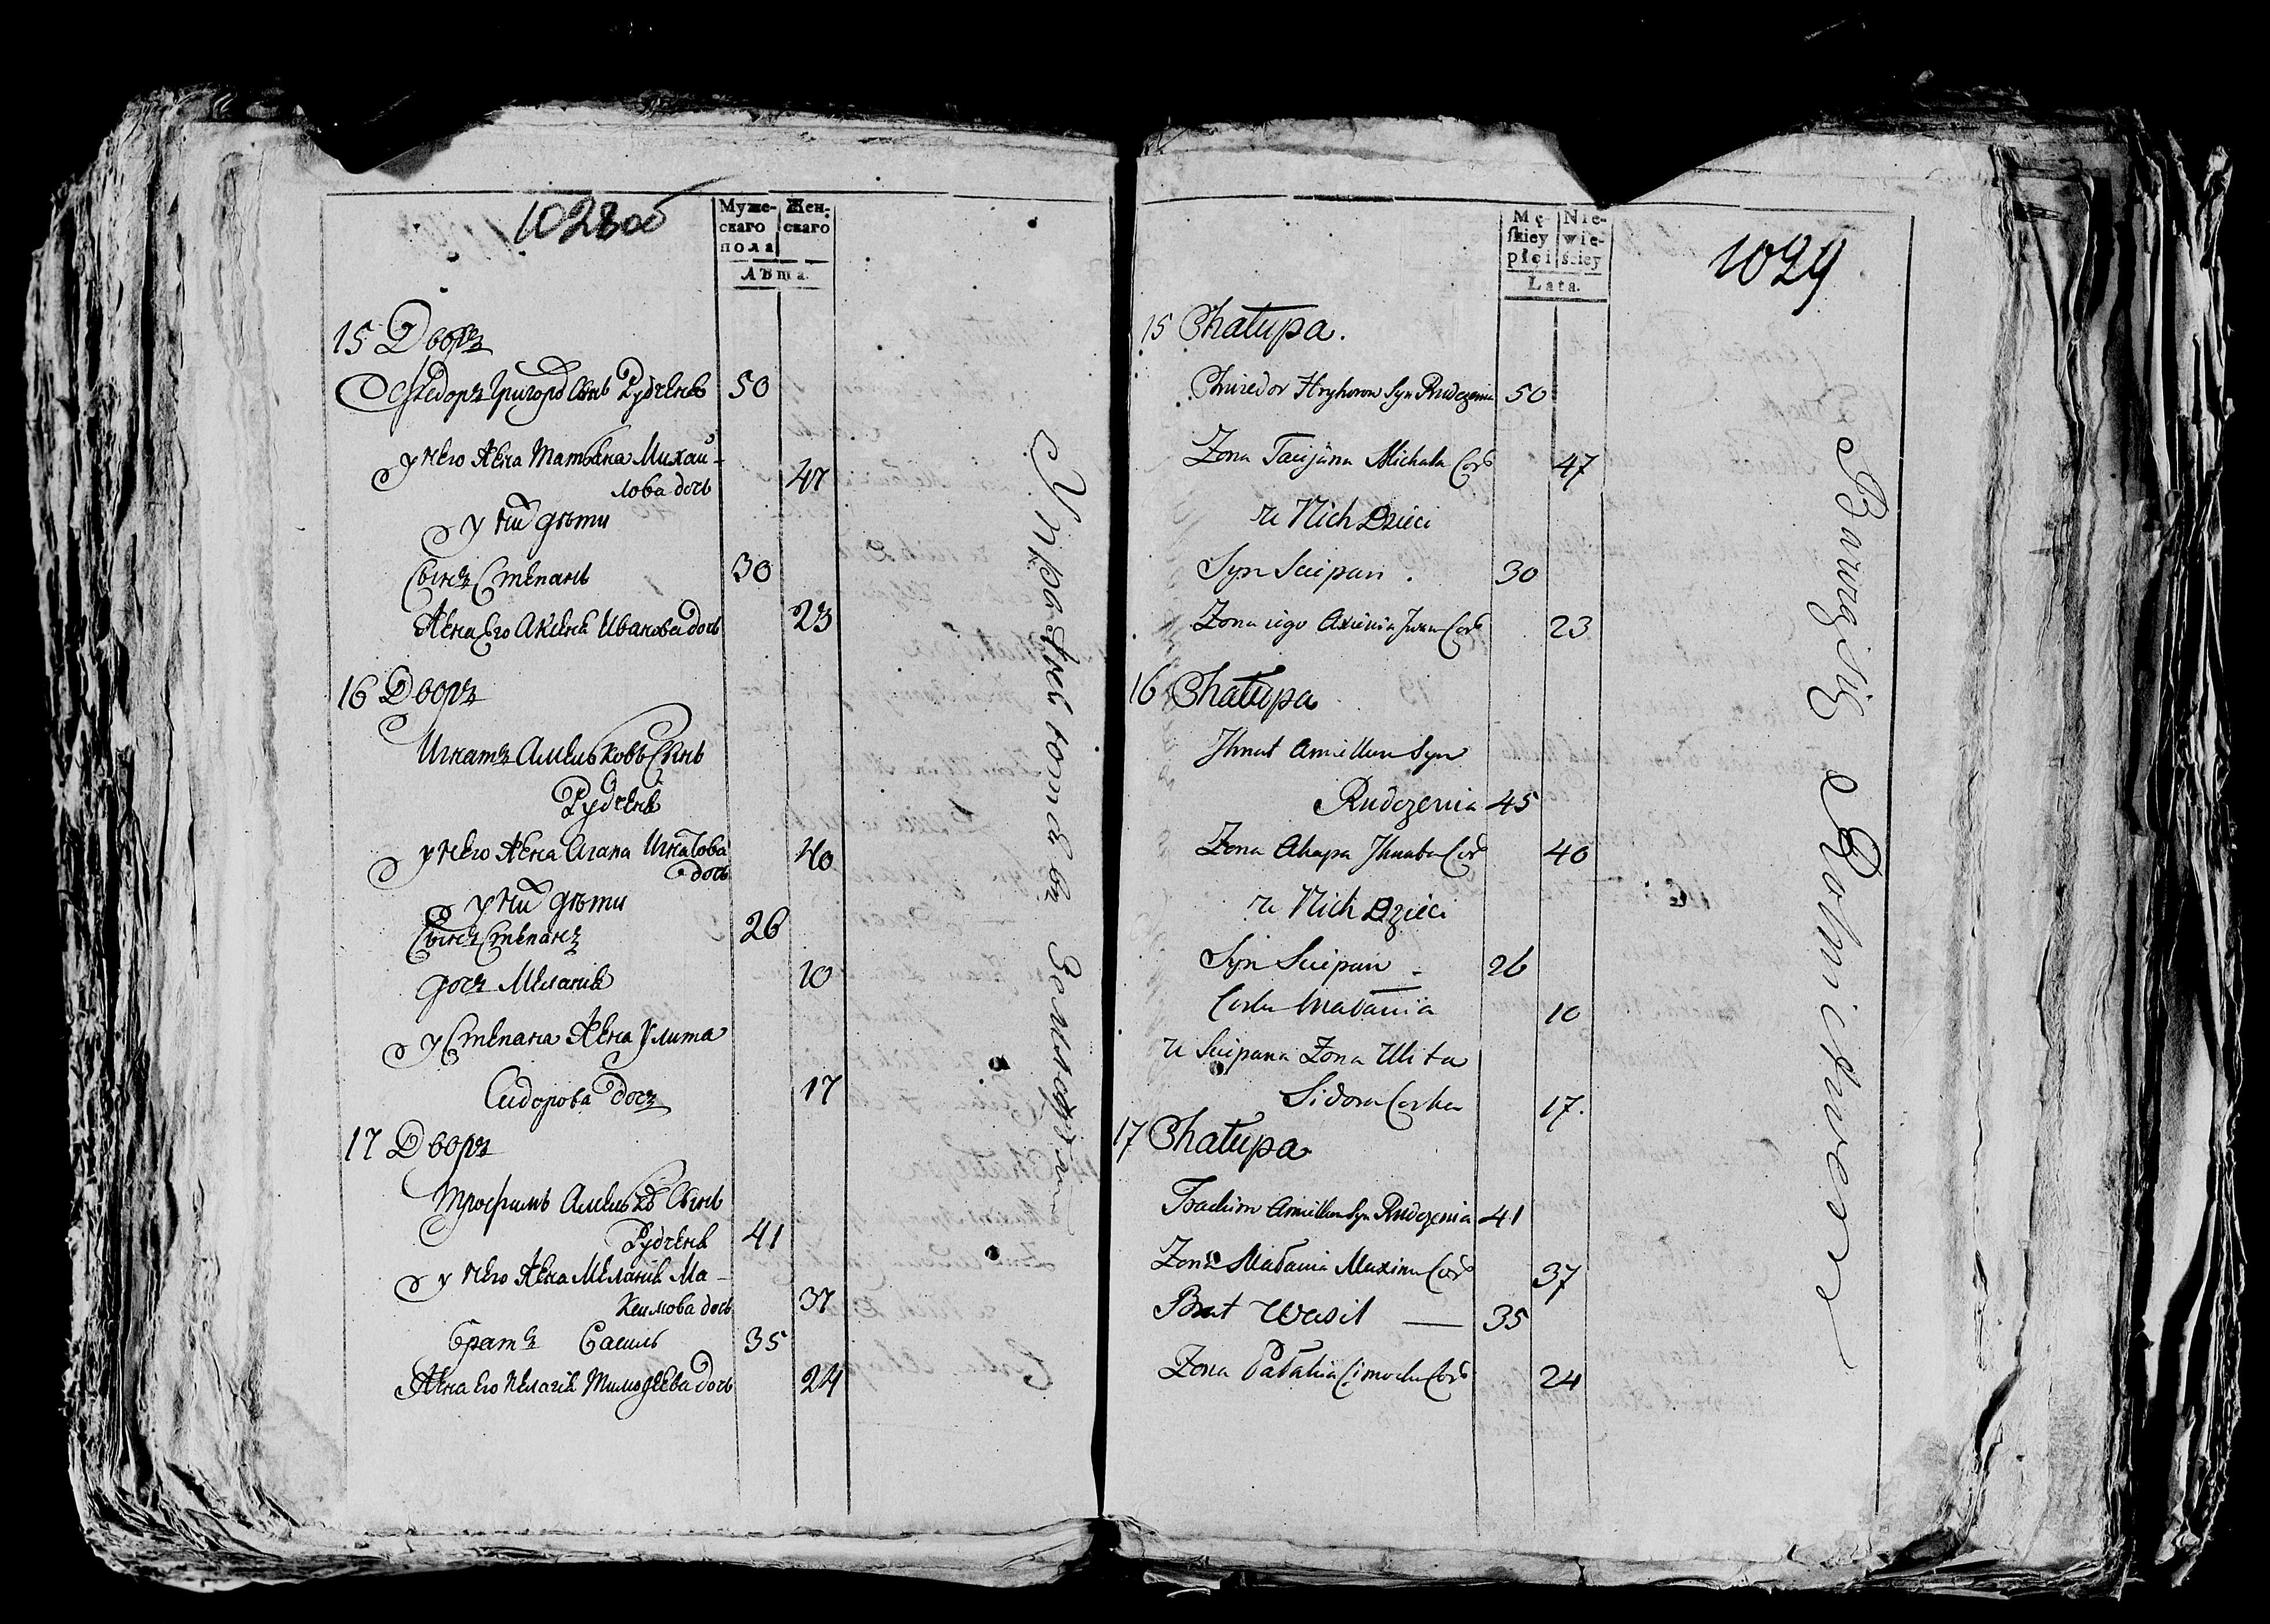 1028об
Муже-
скаго
пола
Жен-
скаго
Лѣта.
15 Дворъ
Федоръ Григоров Сынъ Рудченя 50
у него жена Татьяна Михай-
лова дочь 47
у них дѣти
Сынъ Степанъ 30
жена его Аксеня Иванова дочь 23
16 Дворъ
Игнатъ Амельковъ Сынъ
Рудченя
у него жена Агапа Игнатова
дочь 40
у них дѣти
Сынъ Степанъ 26
дочъ Меланія 10
у Степана жена Улита
Сидорова дочъ 17
17 Дворъ
Трофимъ Амельков Сынъ
Рудченя 41
у него жена Меланія Ма-
ксимова дочь 37
братъ Василь 35
жена его Пелагія Тимофеева дочь 24
Упражняются въ
Mę-
ſkiey
płci
Nie-
wie-
ściey
Lata.
1029
15 Chałupa.
Chwiedor Hryhorow Syn Rudczenia 50
Zona Tacijana Michała Cor 47
u Nich Dzieci
Syn Sciepan . 30
Zona iego Axienia Iwana Cor 23
16 Chałupa
Ihnat Amiellan Syn
Rudczenia 45
Zona Ahapa Ihnata Cor 40
u Nich Dzieci
Syn Sciepan 26
Corka Małania 10
u Sciepana Zona Ulita
Sidora Corka 17.
17 Chałupa
Trachim Amiellan Syn Rudczenia 41
Zona Małania Maxima Cor 37
Brat Wasil — 35
Zona Pałahia Cimocha Cor 24
Bawią Się Rolnictwem